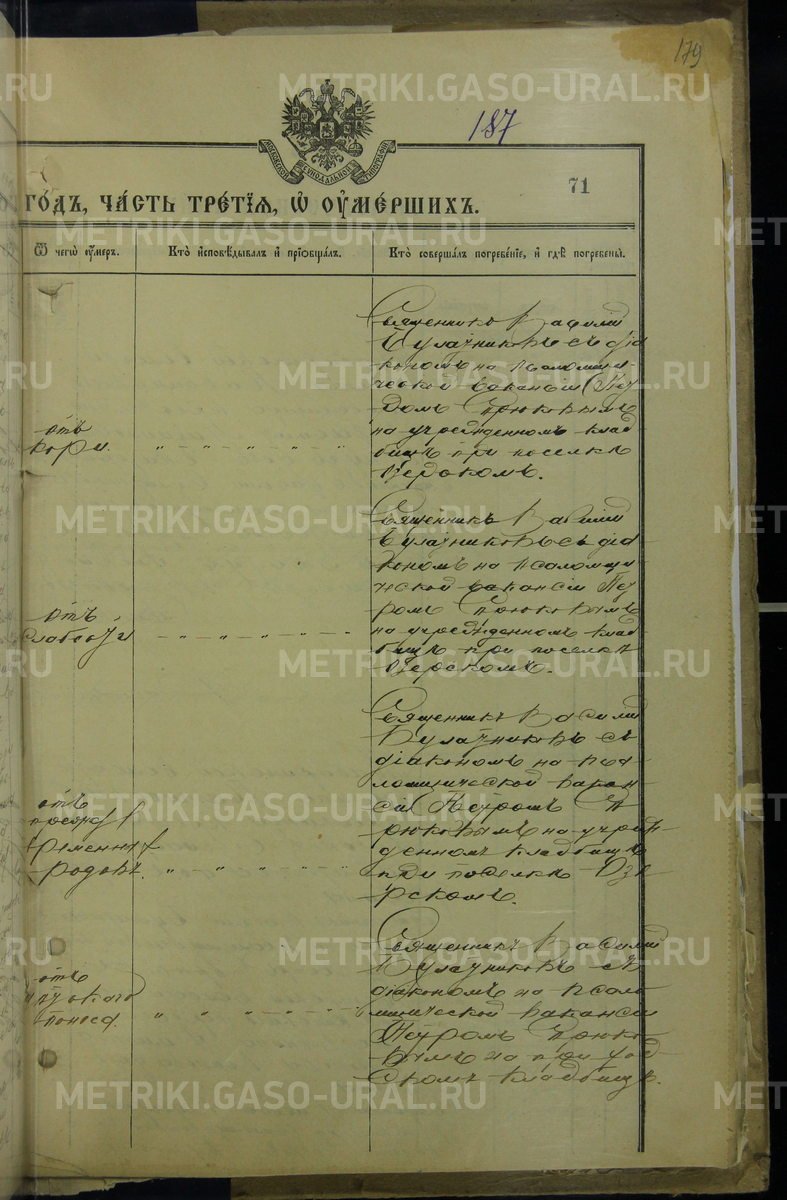 179
187
МОСКОВСКОЙ СѴНОДАЛЬНОЙ ТИПОГРАФІИ
71
ГО́ДЪ, ЧА́СТЬ ТРЕ́ТІЯ, Ѡ҆ ОУ҆МЕ́РШИХЪ.
Ѿ чегѡ̀ оу҆́меръ.
Кто̀ и҆сповѣ́дывалъ и҆ приѻбща́лъ.
Кто̀ соверша́лъ погребе́нїе, и҆ гдѣ̀ погребены̀.
отъ
кори.
Священникъ Василій
Булачниковъ съ діа
кономъ на псаломщи
ческой вакансіи Пет
ромъ Крюковымъ
на учрежденномъ клад
бищѣ при поселкѣ
отъ
слабости
Священникъ Василій
Булачниковъ съ діа
кономъ на псаломщи
ческой вакансіи Пет
ромъ Крюковымъ
на учрежденномъ клад
бищѣ при поселкѣ
Озерскомъ.
отъ
преждев
ременны
родовъ.
Священникъ Василій
Булачниковъ съ
діакономъ на псал
ломщической вакан
сіи Петромъ К
рюковымъ на учреж
денномъ кладбищѣ
при поселкѣ Озе
рскомъ.
отъ
поноса.
Священникъ Василій
Булачниковъ съ
діакономъ на псало
мщической вакансіи
Петромъ Крюко
вымъ на при ход
скомъ кладбищѣ.
METRIKI.GASO-URAL.RU